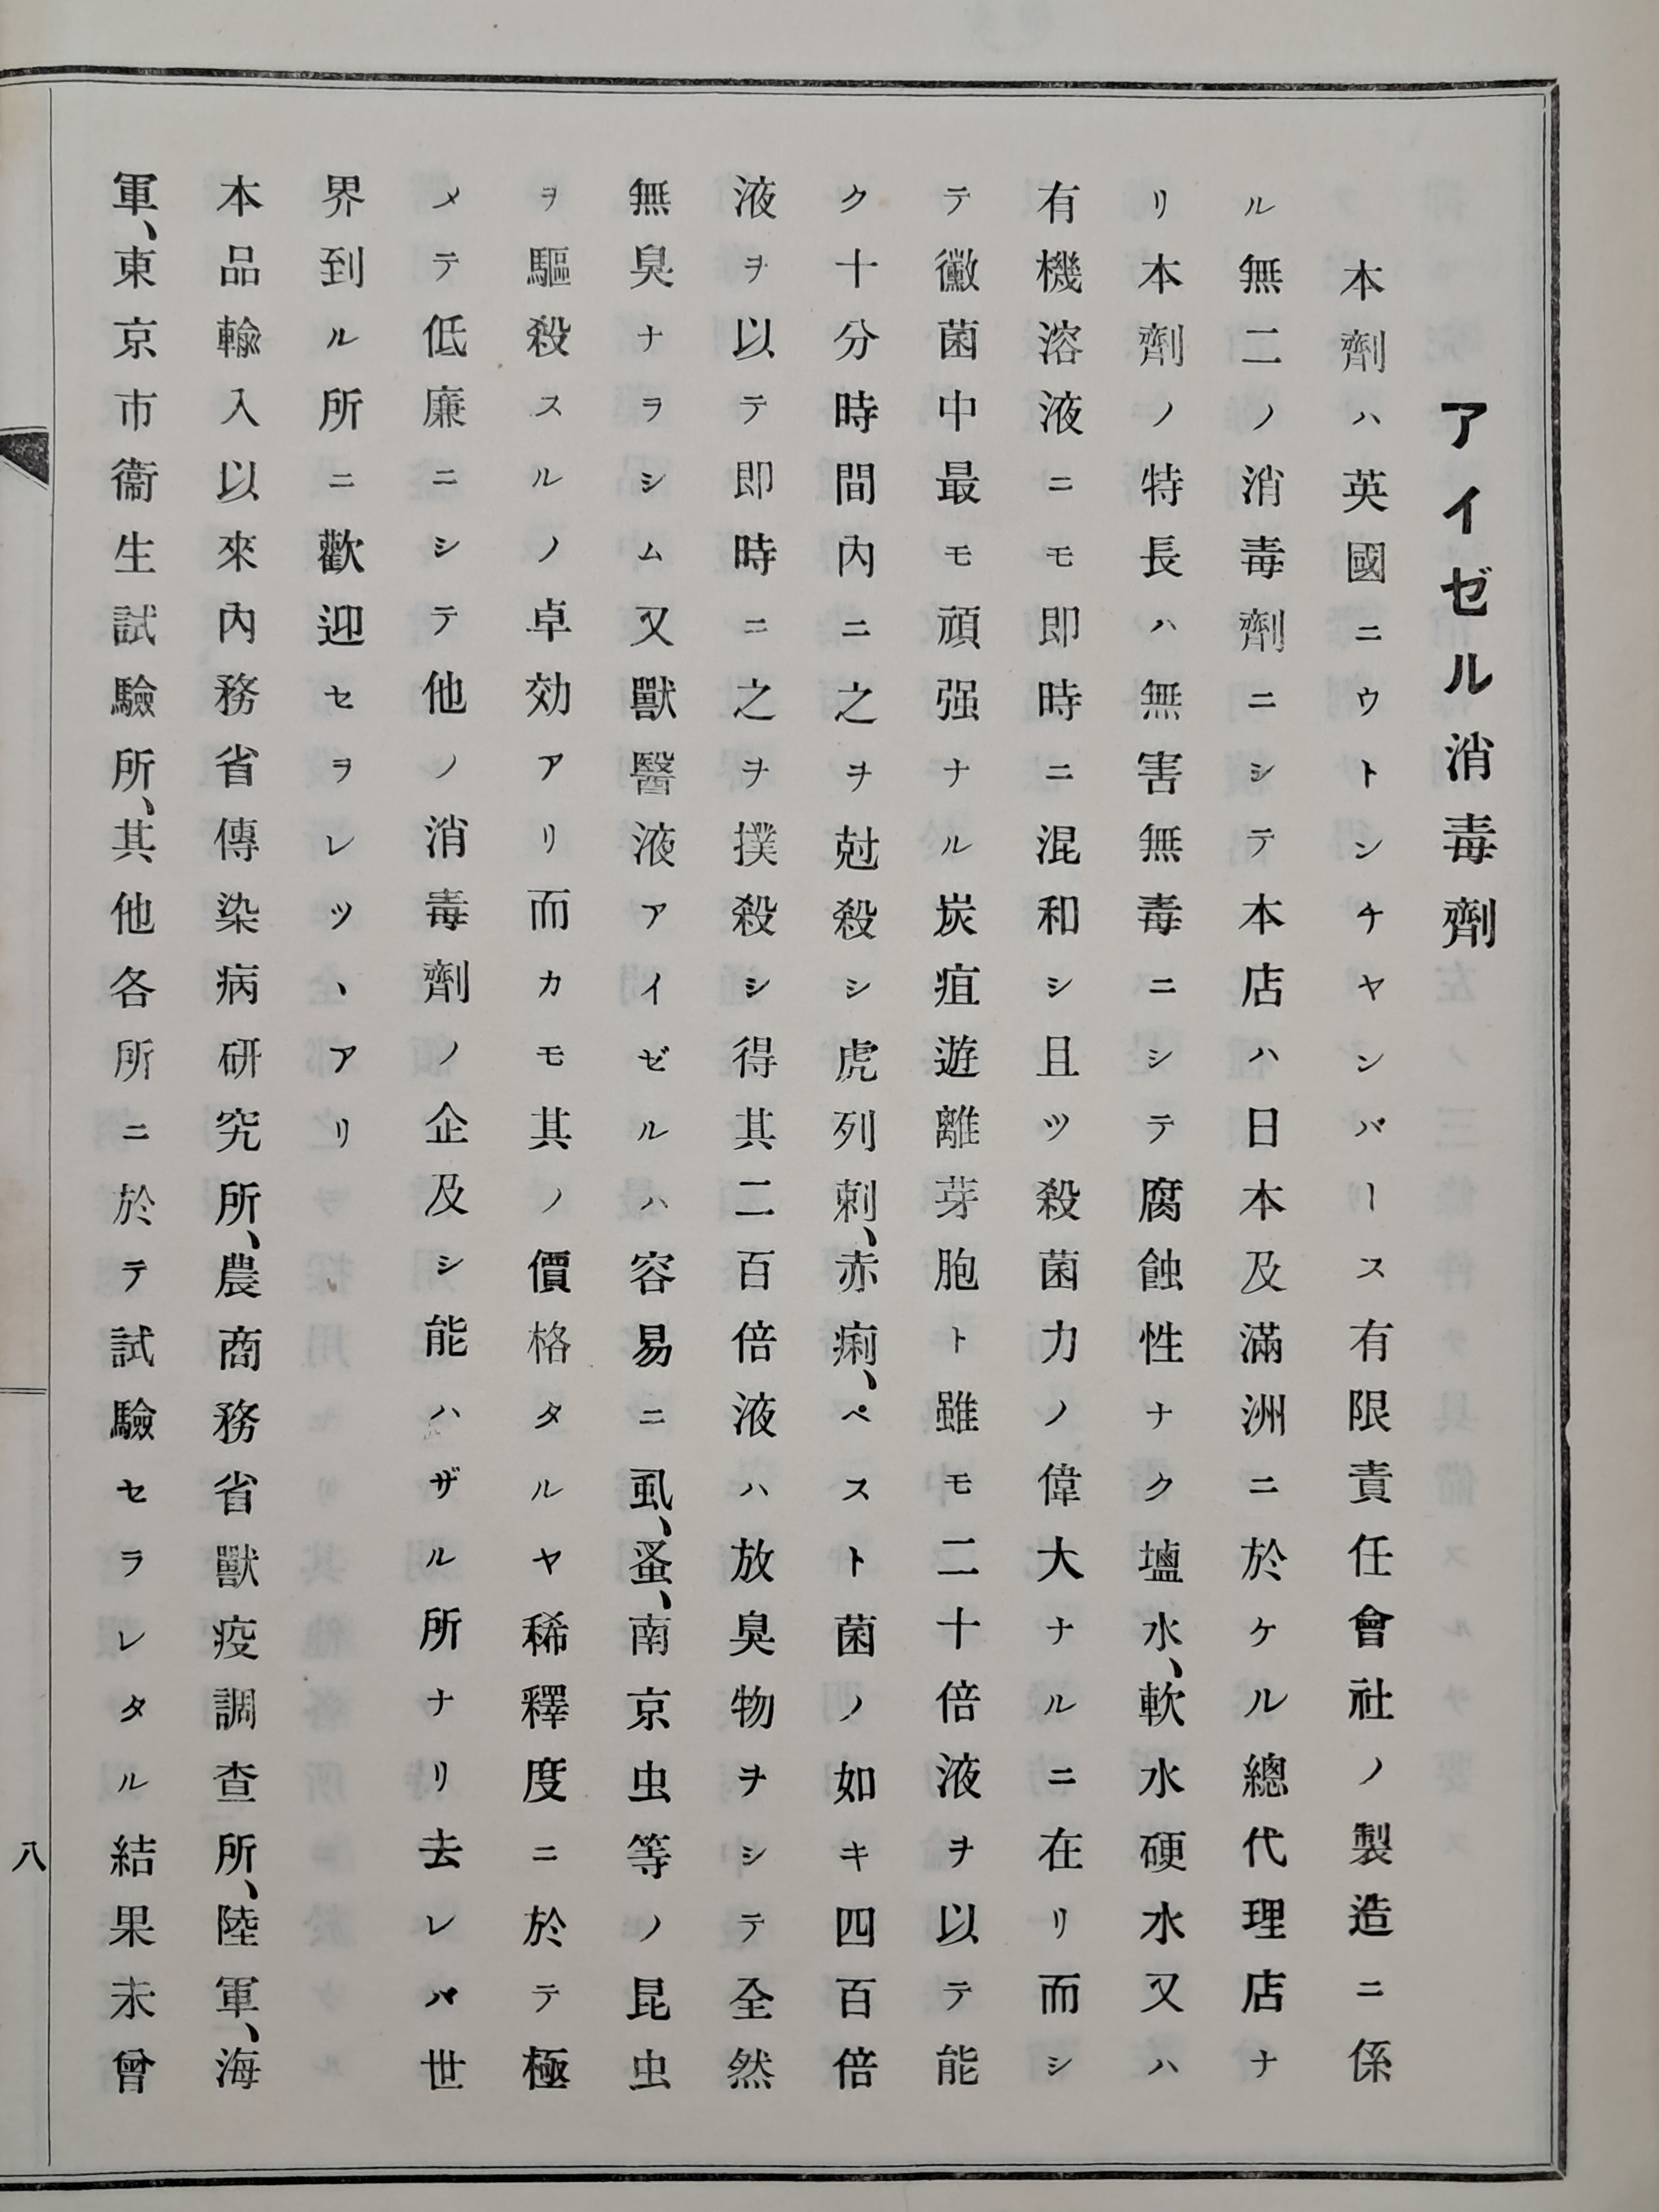 アイゼル消毒劑
本劑ハ英國ニウトンチヤンバース有限責任會社ノ製造ニ係
ル無二ノ消毒劑ニシテ本店ハ日本及滿洲ニ於ケル總代理店ナ
リ本劑ノ特長ハ無害無毒ニシテ腐蝕性ナク塩水、軟水硬水又ハ
有機溶液ニモ即時ニ混和シ且ツ殺菌力ノ偉大ナルニ在リ而シ
テ黴菌中最モ頑强ナル炭疽遊離芽胞ト雖モ二十倍液ヲ以テ能
ク十分時間內ニ之ヲ尅殺シ虎列刺、赤痢、ペスト菌ノ如キ四百倍
液ヲ以テ即時ニ之ヲ撲殺シ得其二百倍液ハ放臭物ヲシテ全然
無臭ナラシム又獸醫液アイゼルハ容易ニ虱、蚤、南京虫等ノ昆虫
ヲ驅殺スルノ卓効アリ而カモ其ノ價格タルヤ稀釋度ニ於テ極
メテ低廉ニシテ他ノ消毒劑ノ企及シ能ハザル所ナリ去レバ世
界到ル所ニ歡迎セヲレツヽアリ
本品輸入以來內務省傳染病研究所、農商務省獸疫調查所、陸軍、海
軍、東京市衞生試驗所、其他各所ニ於テ試驗セラレタル結果未曾
八